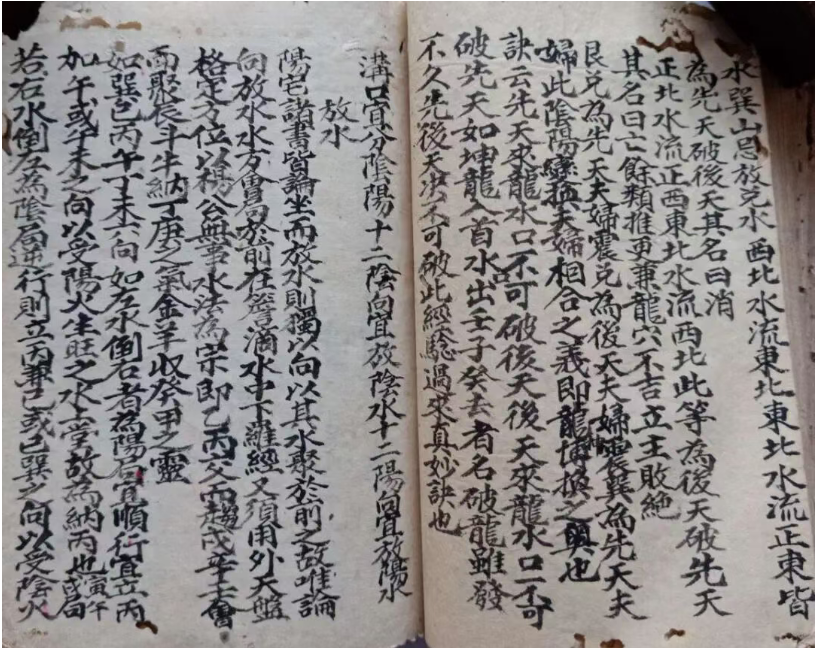 水巽山忌放兑水 西北水流東北東北水流正東皆
為先天破後天其名曰消
正北水流正西東北水流西北此等為後天破先天
其名曰亡餘類推更兼龍穴不吉立主敗絶
艮兑為先天夫婦震兑為後天夫婦震巽為先天夫
婦此陰陽夫婦相合之義即龍博換之奧也
訣云先天來龍水口不可破後天後天來龍水口不可
破先天如坤龍入首水出壬子癸去者名破龍雖發
不久先後天決不可破此經驗過來真妙訣也
溝口宜分陰陽十二陰向宜放陰水十二陽向宜放陽水
放水
陽宅諸書皆論坐而放水則獨以向以其水聚於前之故唯論
向放水水方會局於前在簷滴水中下羅經又須用外天盤
格定方位以楊公無事水法為宗即乙丙交而趨戌辛壬會
而聚辰斗牛納丁庚之氣金羊收癸甲之靈
如巽巳丙午丁未六向如左水倒右者為陽局宜順行宜立丙
加午或午未之向以受陽火生旺之水上堂故為納丙也寅午戌局
若右水倒左為陰局逆行則立丙兼巳或巳巽之向以受陰火